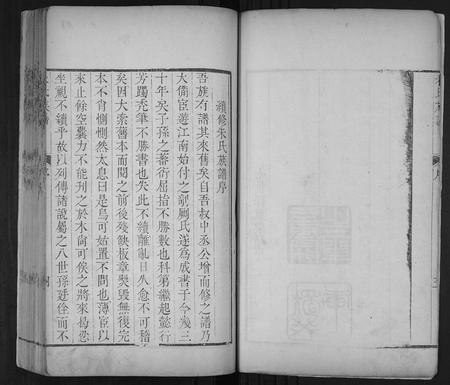 續修朱氏族譜序
吾族有譜其來舊矣自吾叔中丞公增而修之譜乃
大備宦遊江南始付之剞劂氏遂為成書于今幾三
十年矣子孫之蕃衍屈指不勝數也科第繼起懿行
芳躅禿筆不勝書也失此不續離亂日久愈不可稽
矣因大索舊本而閱之前後殘缺板章煢毀無復完
本不肖惻惻然太息曰是烏可始置不問也薄宦以
來止餘空囊力不能刊之於木尚可俟之將來爲忍
坐視不續乎故以列傳諸說屬之八世孫廷佺而不